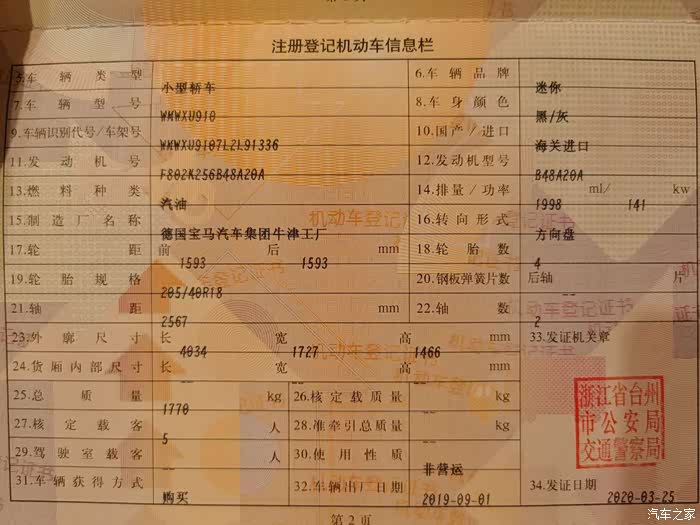 注册登记机动车信息栏
5.车辆类型 小型轿车 6.车辆品牌 迷你
7.车辆型号 WMWXU910 8.车身颜色 黑/灰
9.车辆识别代号/车架号 WMWXU9107L2L91336 10.国产/进口 海关进口
11.发动机号 F802K256B48A20A 12.发动机型号 B48A20A
13.燃料种类 汽油 14.排量/功率 1998 ml/ 141 kw
15.制造厂名称 德国宝马汽车集团牛津工厂 16.转向形式 方向盘
17.轮距 前 1593 后 1593 mm 18.轮胎数 4
19.轮胎规格 205/40R18 20.钢板弹簧片数 后轴 -- 片
21.轴距 2567 mm 22.轴数 2
23.外廓尺寸 长 4034 宽 1727 高 1466 mm 33.发证机关章
24.货厢内部尺寸 长 -- 宽 -- 高 -- mm
25.总质量 1770 kg 26.核定载质量 -- kg
27.核定载客 5 人 28.准牵引总质量 -- kg
29.驾驶室载客 -- 人 30.使用性质 非营运
31.车辆获得方式 购买 32.车辆出厂日期 2019-09-01 34.发证日期 2020-03-25
浙江省台州
市公安局
交通警察局
第2页
汽车之家